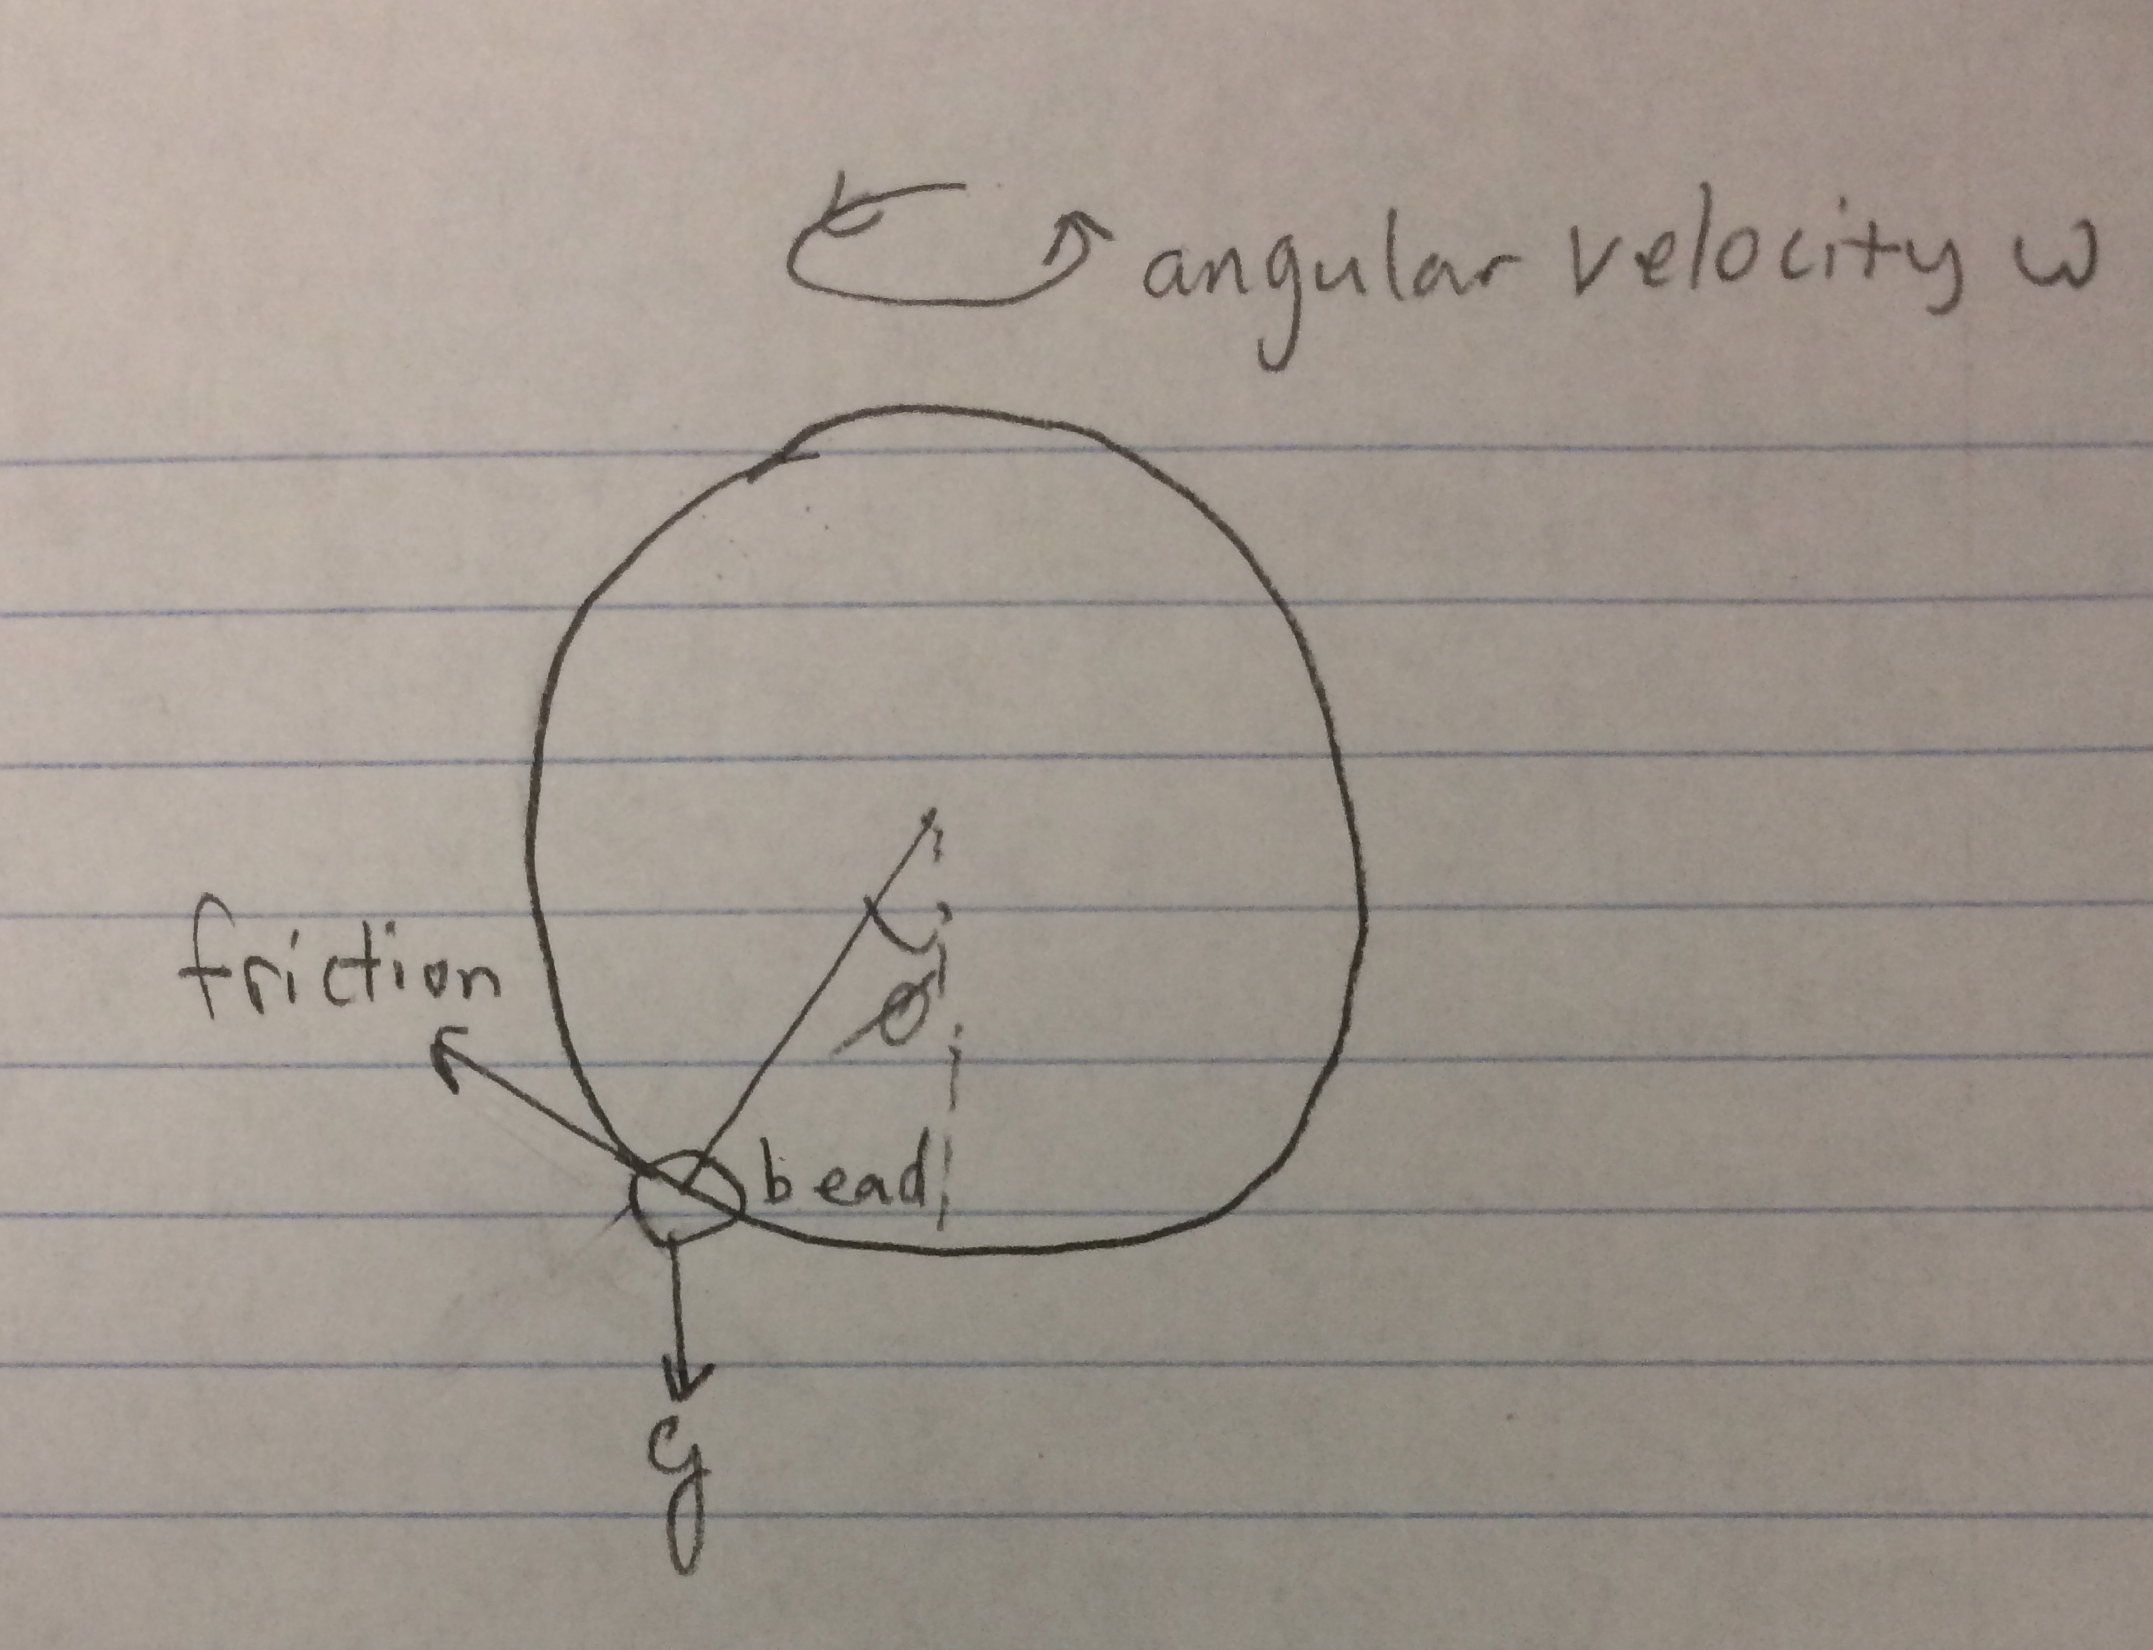 angular velocity ω
friction
ø
bead
g